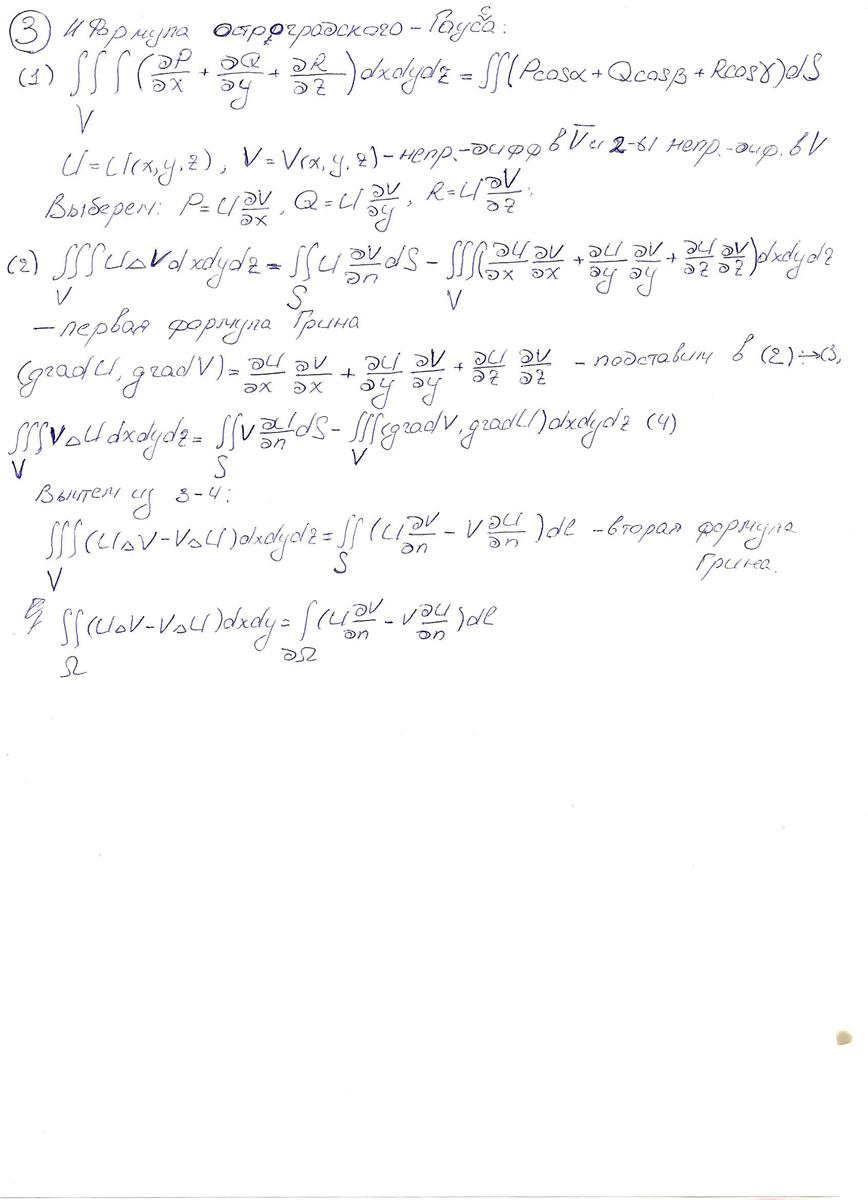 ③ И Формула Остроградского-Гауса:
с
(1) ∭ (∂P/∂x + ∂Q/∂y + ∂R/∂z) dxdydz = ∬(Pcosα + Qcosβ + Rcosγ)dS
V
U=U(x,y,z), V=V(x,y,z) - непр.-дифф в V̅ и 2-ы непр.-диф. в V
Выберем: P=U ∂V/∂x, Q=U ∂V/∂y, R=U ∂V/∂z:
(2) ∭ U△Vdxdydz = ∬ U ∂V/∂n dS - ∭(∂U/∂x ∂V/∂x + ∂U/∂y ∂V/∂y + ∂U/∂z ∂V/∂z)dxdydz
V S V
- первая формула Грина
(gradU, gradV) = ∂U/∂x ∂V/∂x + ∂U/∂y ∂V/∂y + ∂U/∂z ∂V/∂z - подставим в (2) → (3,
∭V△Udxdydz = ∬V ∂U/∂n dS - ∭(gradV, gradU)dxdydz (4)
V S V
Вычтем из 3-4:
∭(U△V-V△U)dxdydz = ∬(U ∂V/∂n - V ∂U/∂n)dl - вторая формула
V S Грина.
∬(U△V-V△U)dxdy = ∫(U ∂V/∂n - V ∂U/∂n)dl
Ω ∂Ω